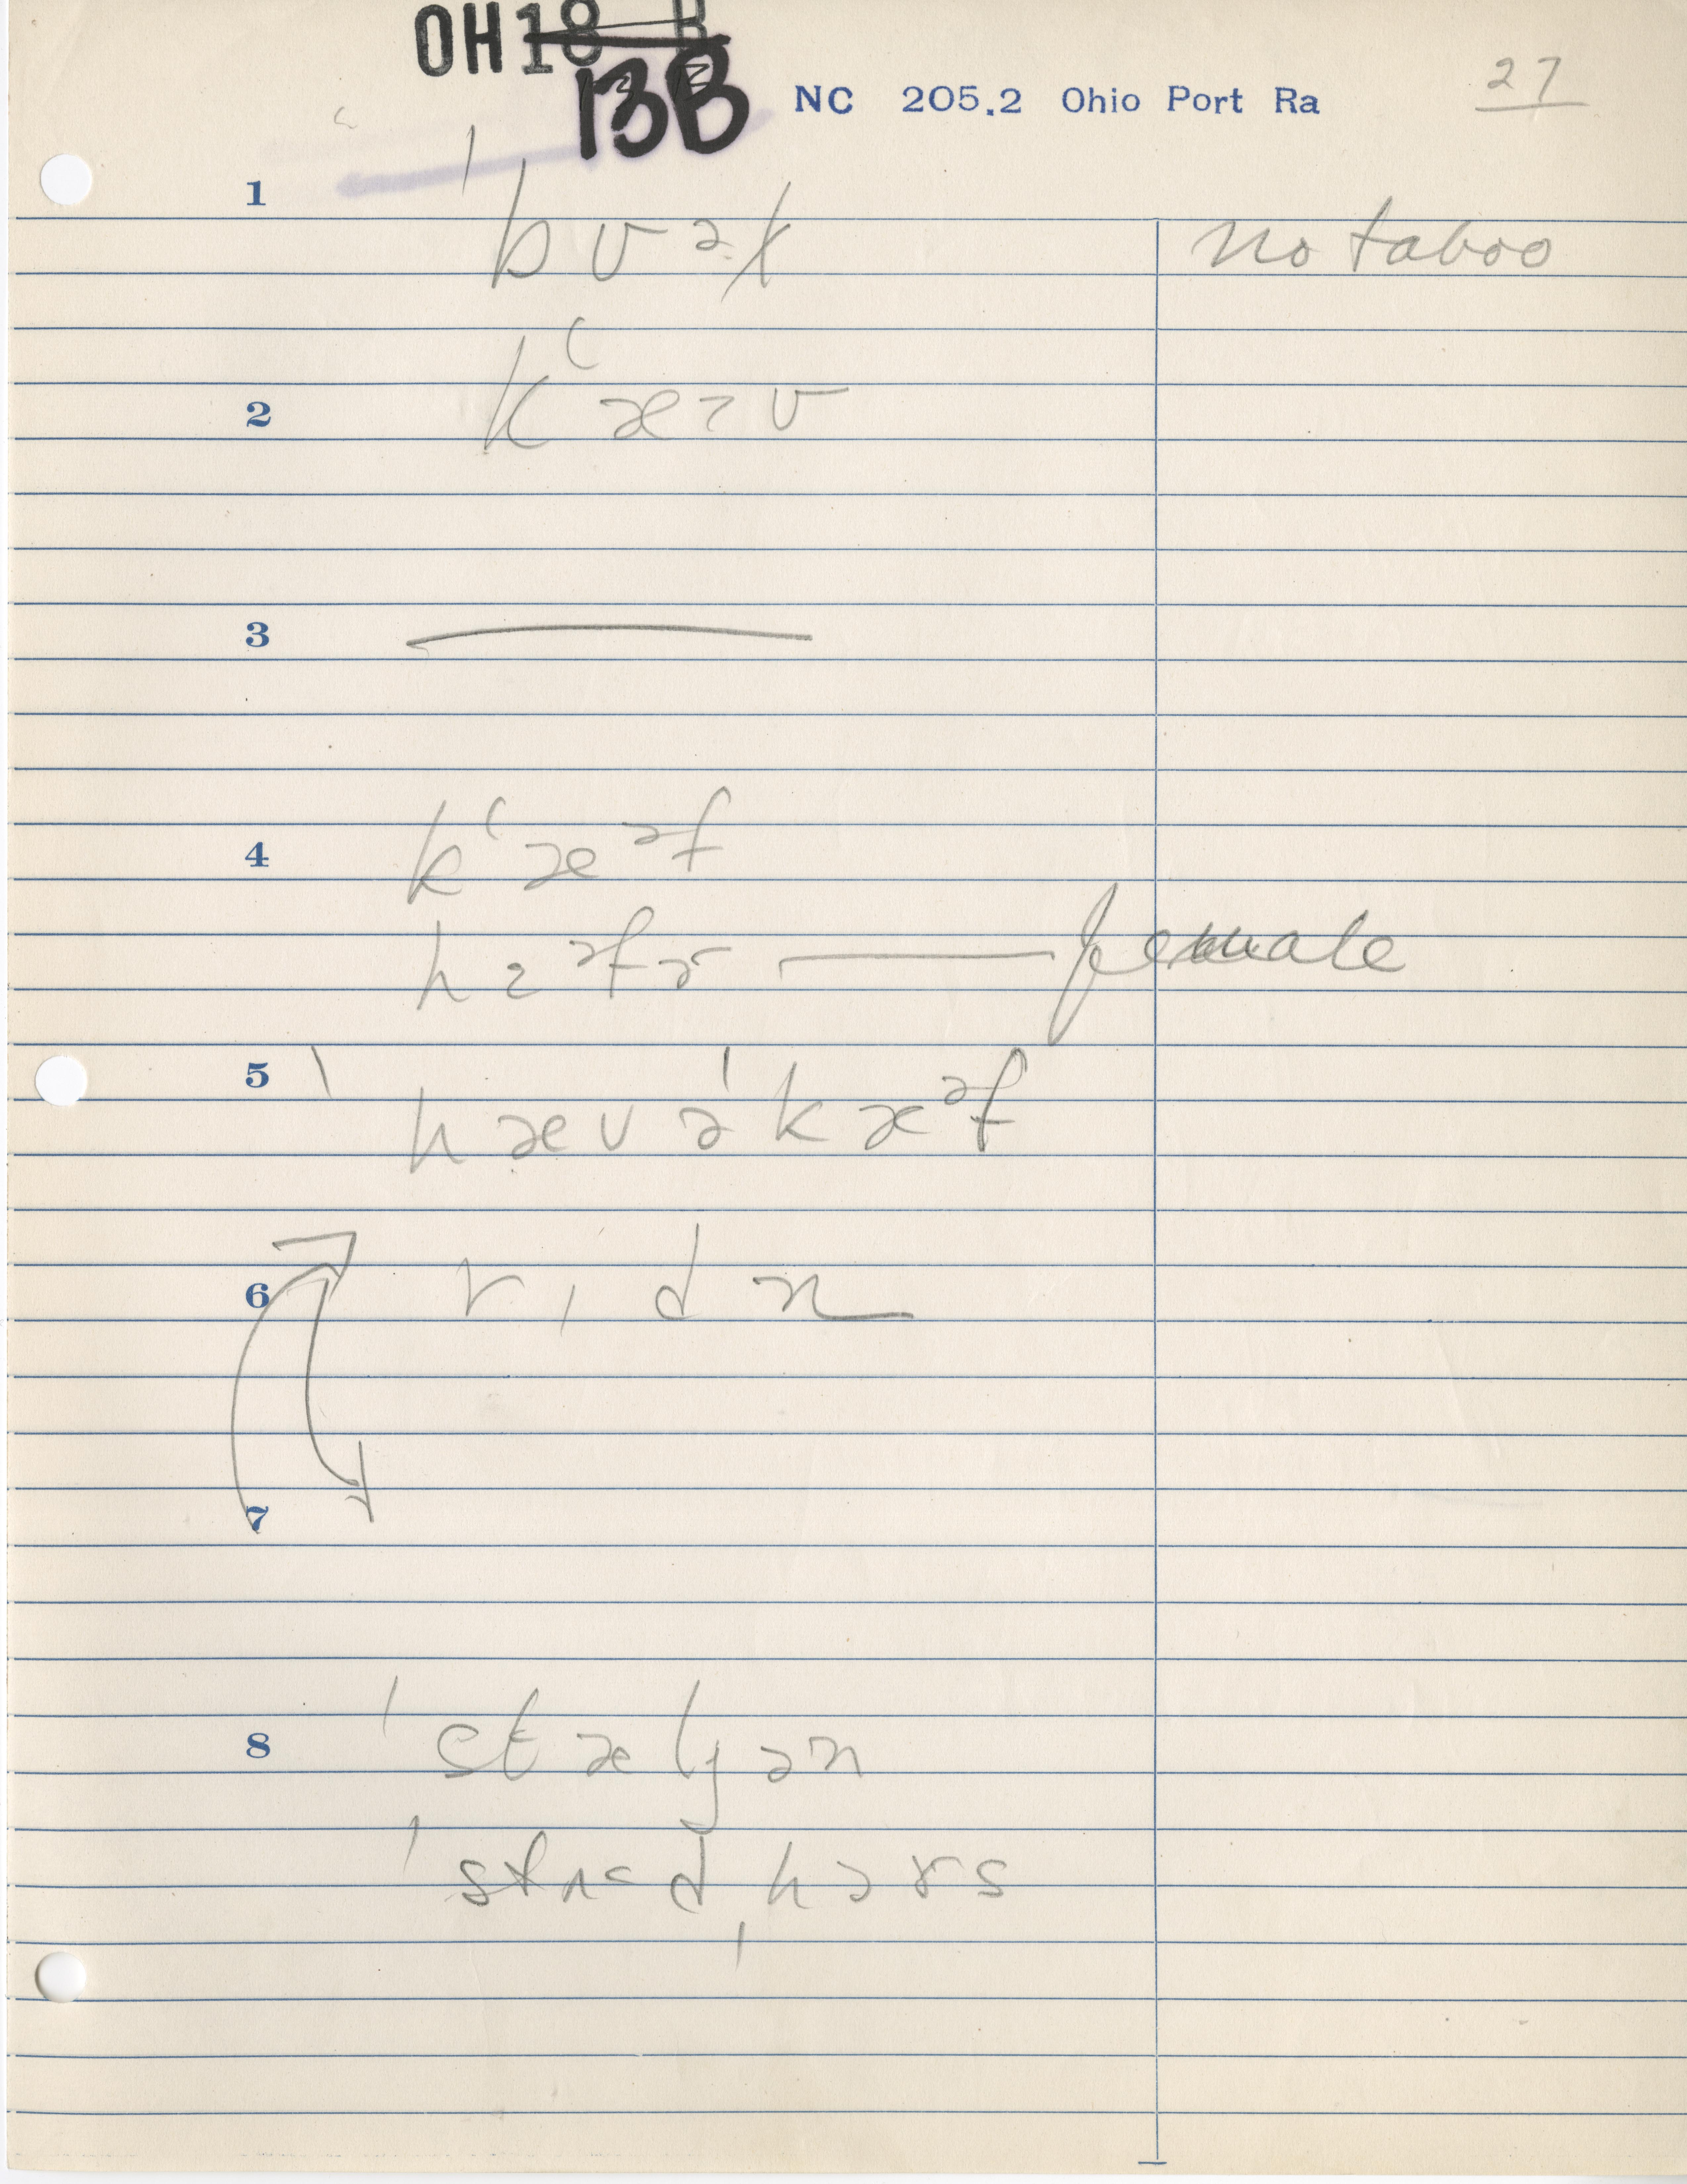 OH18 B
13B
NC 205.2 Ohio Port Ra
27
1
ˈbʊək no taboo
2 kʻæəv
3
4 kʻæᵊf
hɛᵊfɚ — female
5 ˈhævəˈkæᵊf
6
7
8 ˈstæljən
ˈstʌdˌhɔrs